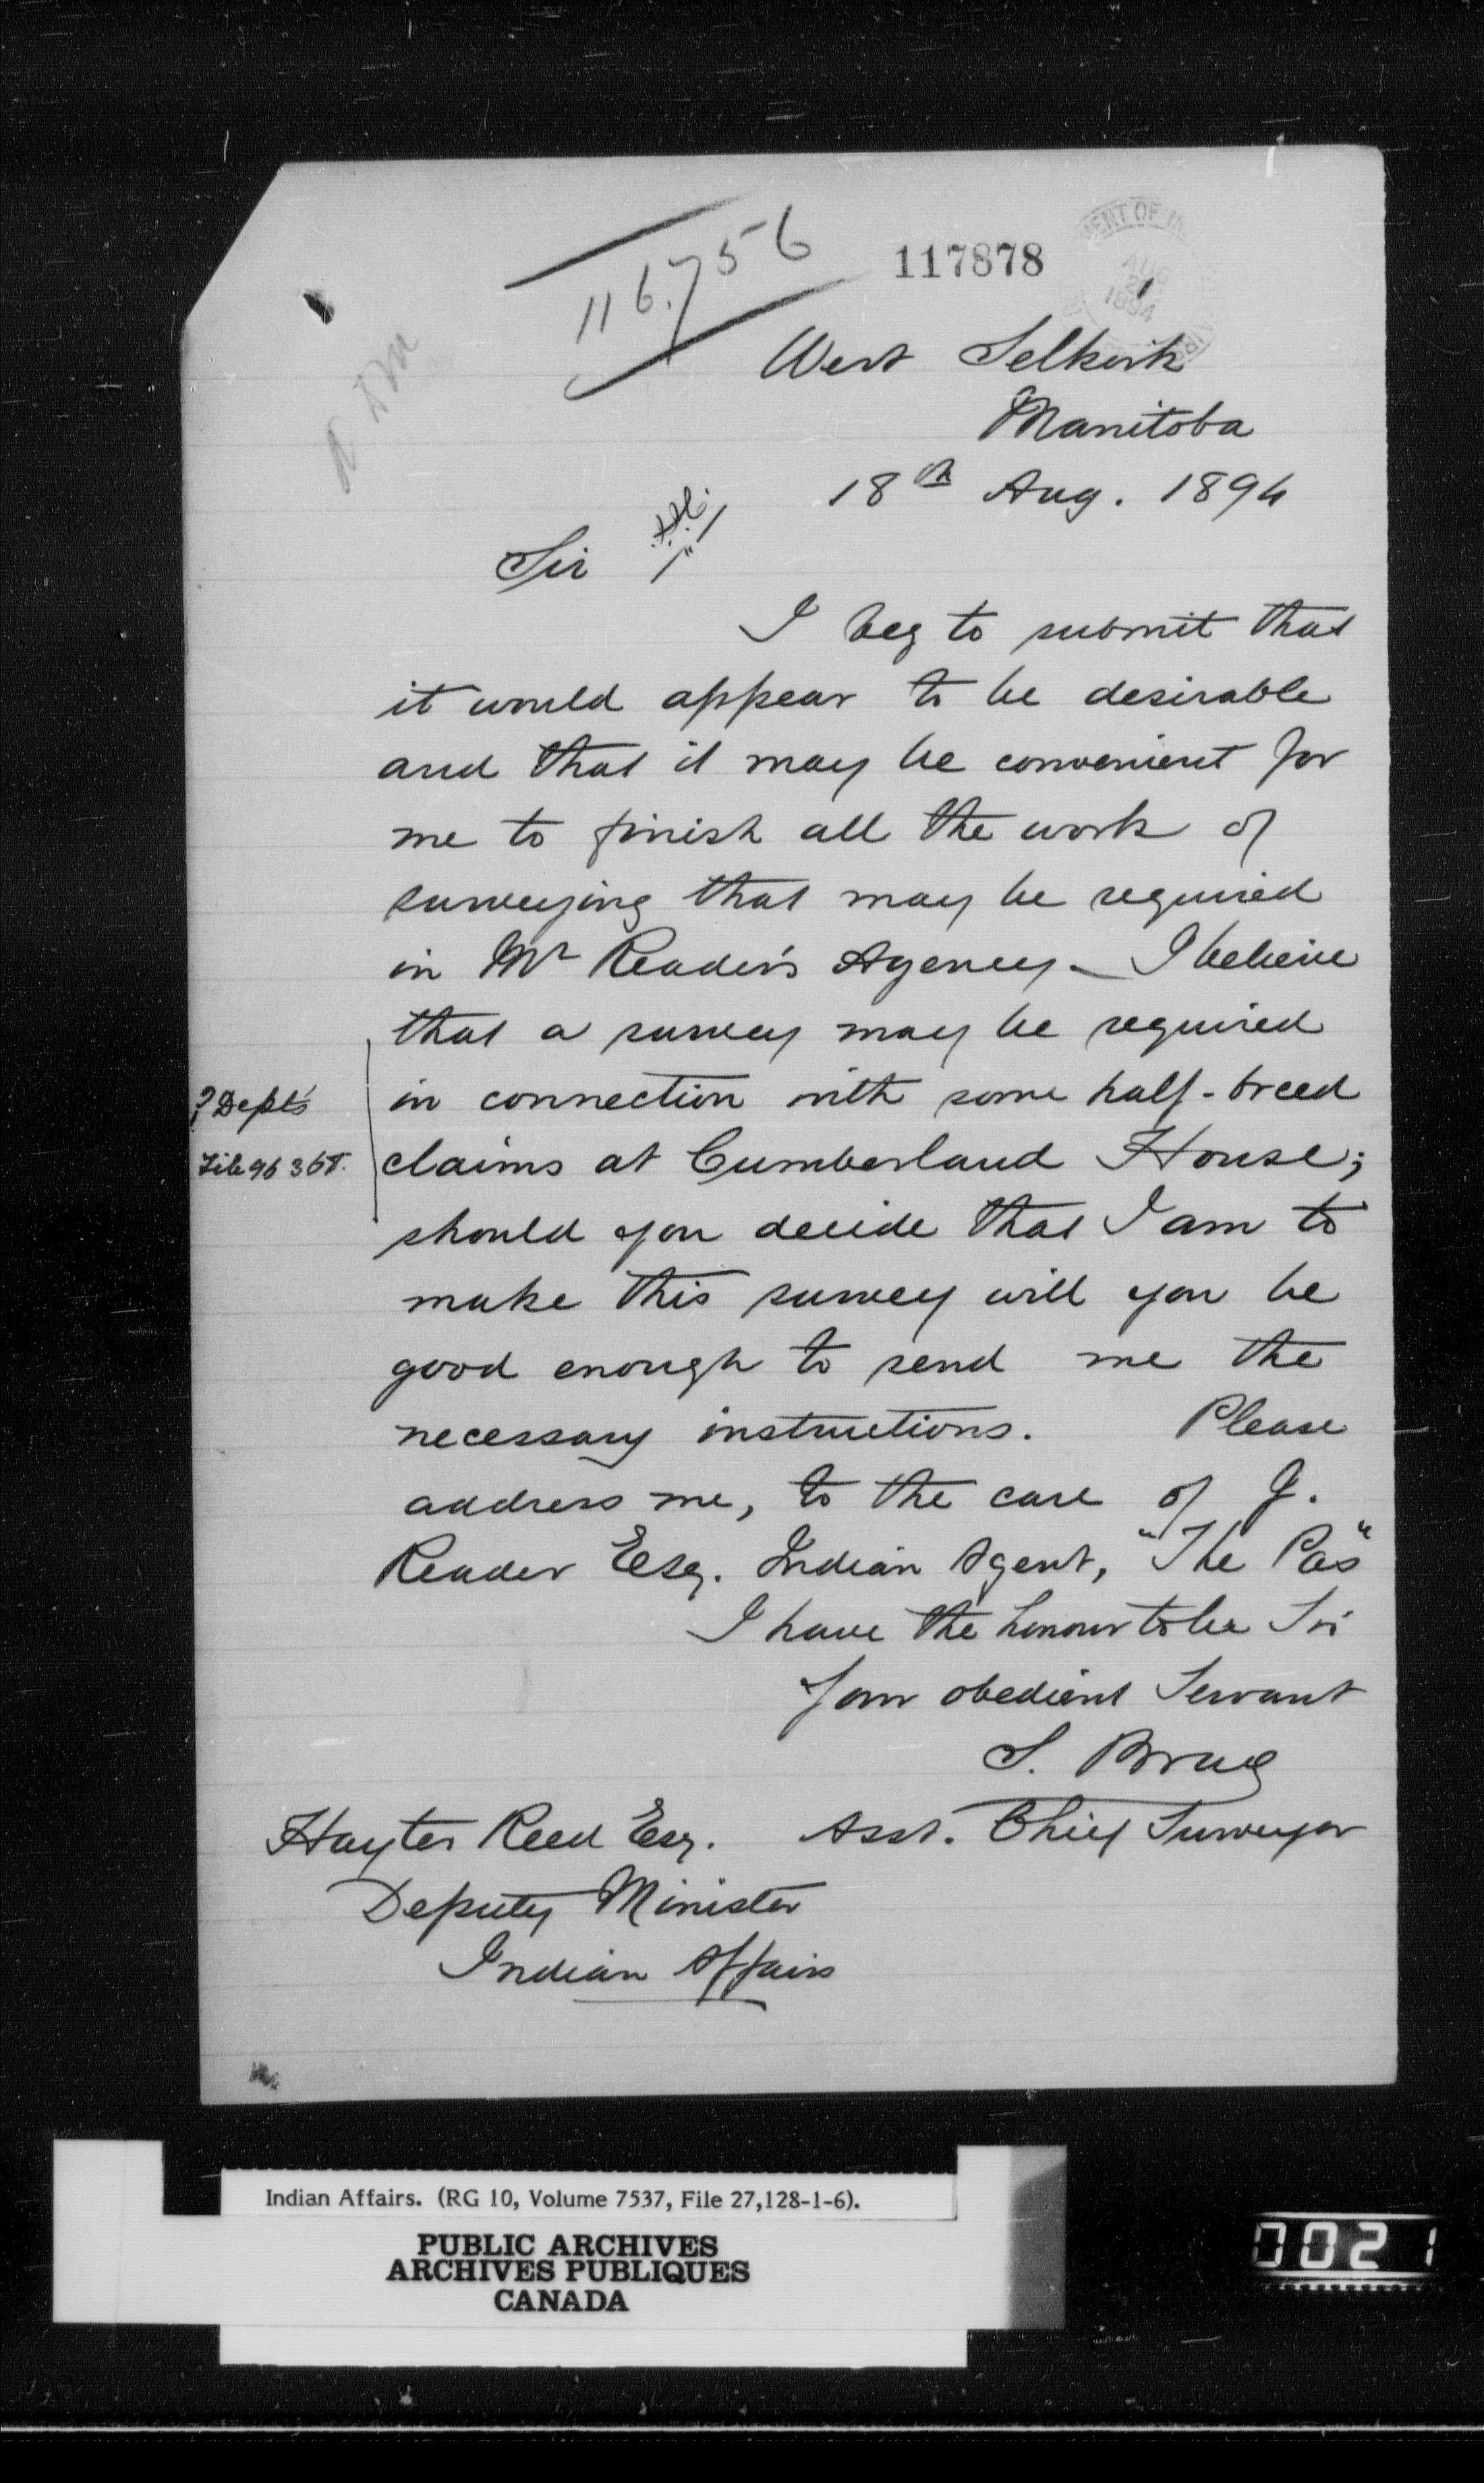 116.756
117878
AUG 21 1894
West Selkirk
Manitoba
18th Aug. 1894
Sir
I beg to submit that
it would appear to be desirable
and that it may be convenient for
me to finish all the work of
surveying that may be required
in Mr Reader's Agency - I believe
that a survey may be required
in connection with some half-breed
? Dept's
claims at Cumberland House;
File 96368.
should you decide that I am to
make this survey will you be
good enough to send me the
necessary instructions. Please
address me, to the care of J.
Reader Esq. Indian Agent, "The Pas"
I have the honour to be Sir
Your obedient Servant
S. Bray
Asst. Chief Surveyor
Hayter Reed Esq.
Deputy Minister
Indian Affairs
Indian Affairs. (RG 10, Volume 7537, File 27,128-1-6).
PUBLIC ARCHIVES
ARCHIVES PUBLIQUES
CANADA
0021